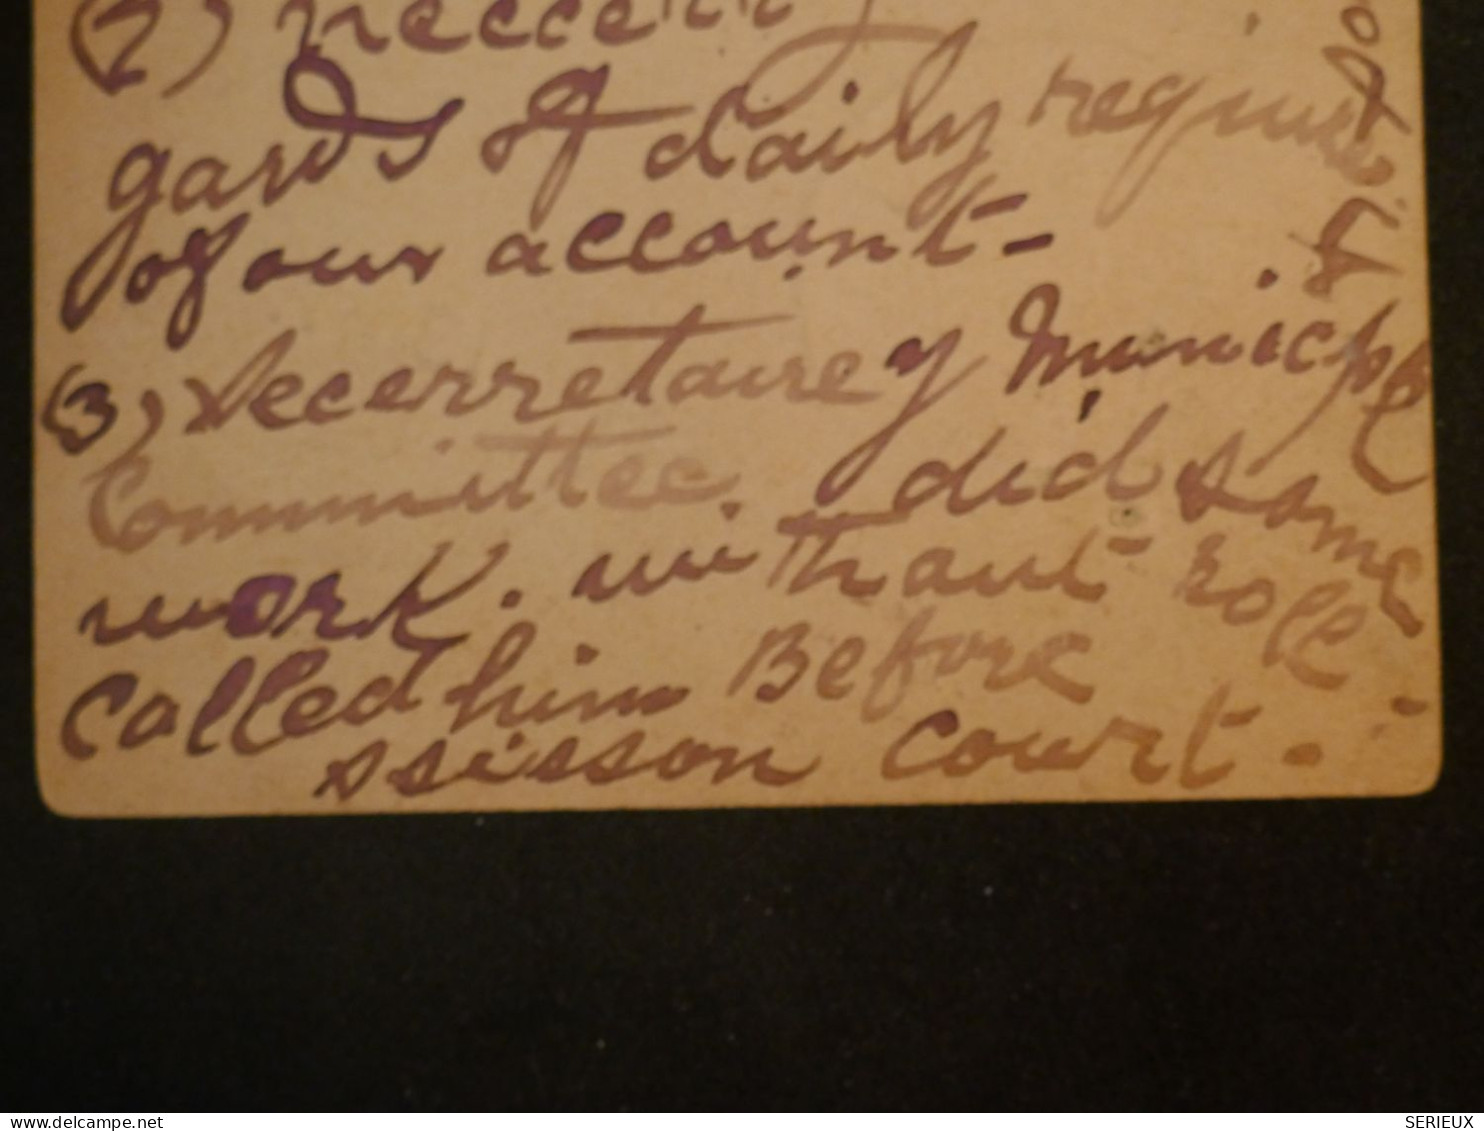 (2)
gards of daily
of our account-
(3) Secerretairey Municipl
Committee. did some
work. without role.
called him Before
ssisson court-.
www.delcampe.net
SERIEUX